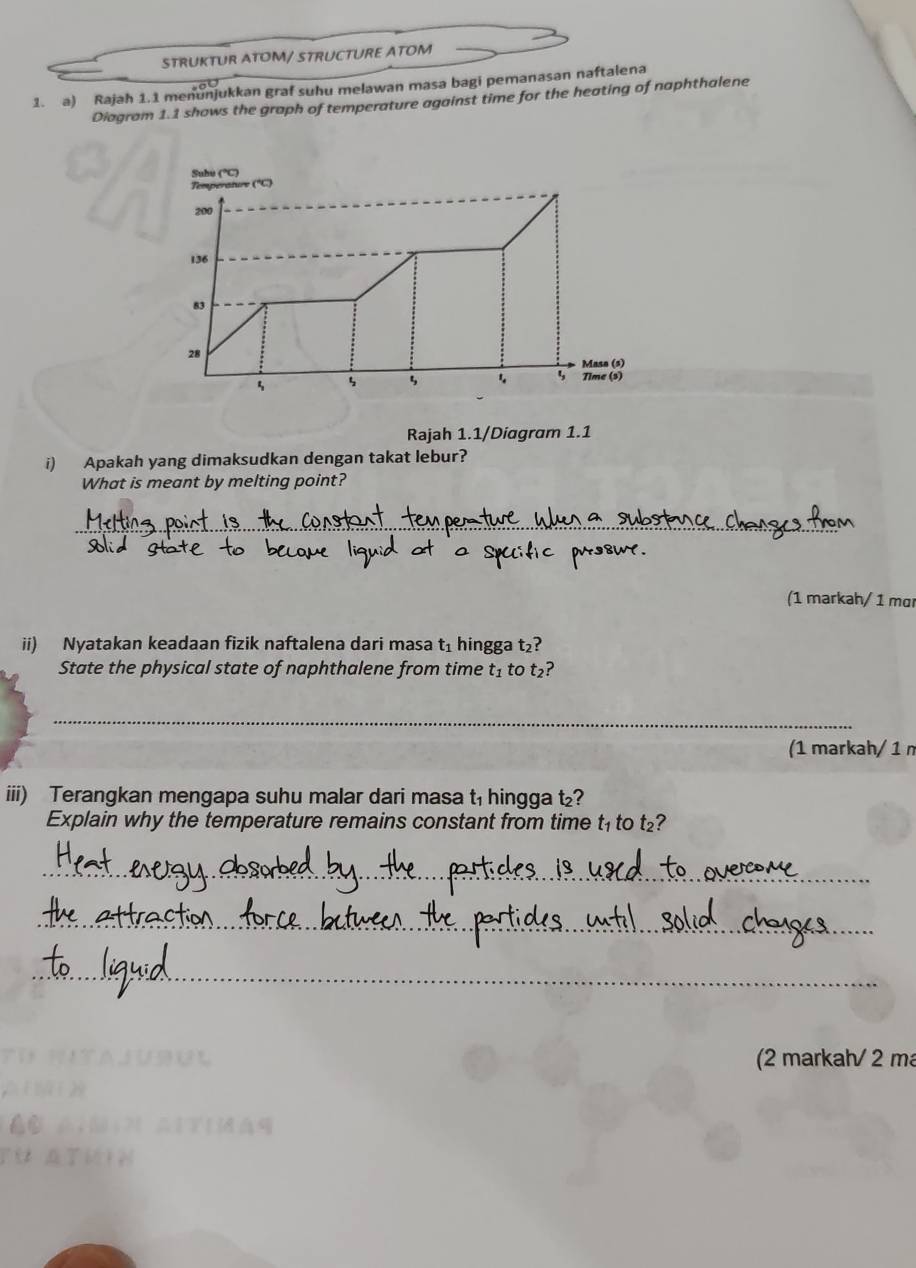 STRUKTUR ATOM/ STRUCTURE ATOM
1. a) Rajah 1.1 menunjukkan graf suhu melawan masa bagi pemanasan naftalena
Diagram 1.1 shows the graph of temperature against time for the heating of naphthalene
Suhu (°C)
Temperature (°C)
200
136
83
28
Masa (s)
t₁ t₂ t₃ t₄ t₅ Time (s)
Rajah 1.1/Diagram 1.1
i) Apakah yang dimaksudkan dengan takat lebur?
What is meant by melting point?
Melting point is the constant temperature when a substance changes from
solid state to become liquid at a specific pressure.
(1 markah/ 1 mar
ii) Nyatakan keadaan fizik naftalena dari masa t₁ hingga t₂?
State the physical state of naphthalene from time t₁ to t₂?
(1 markah/ 1 m
iii) Terangkan mengapa suhu malar dari masa t₁ hingga t₂?
Explain why the temperature remains constant from time t₁ to t₂?
Heat energy absorbed by the particles is used to overcome
the attraction force between the particles until solid changes
to liquid
(2 markah/ 2 ma